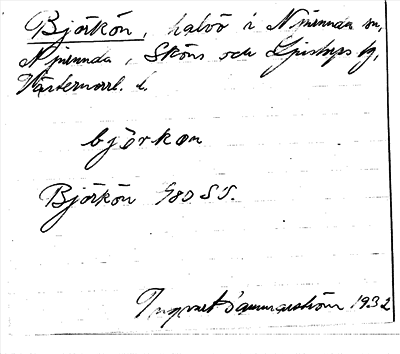 Björkön, halvö i Njurunda sn,
Njurunda, Sköns och Ljustorps tg,
Västernorrl. l.
björkon
Björkön 980 ST.
Ingvar Hammarström 1932